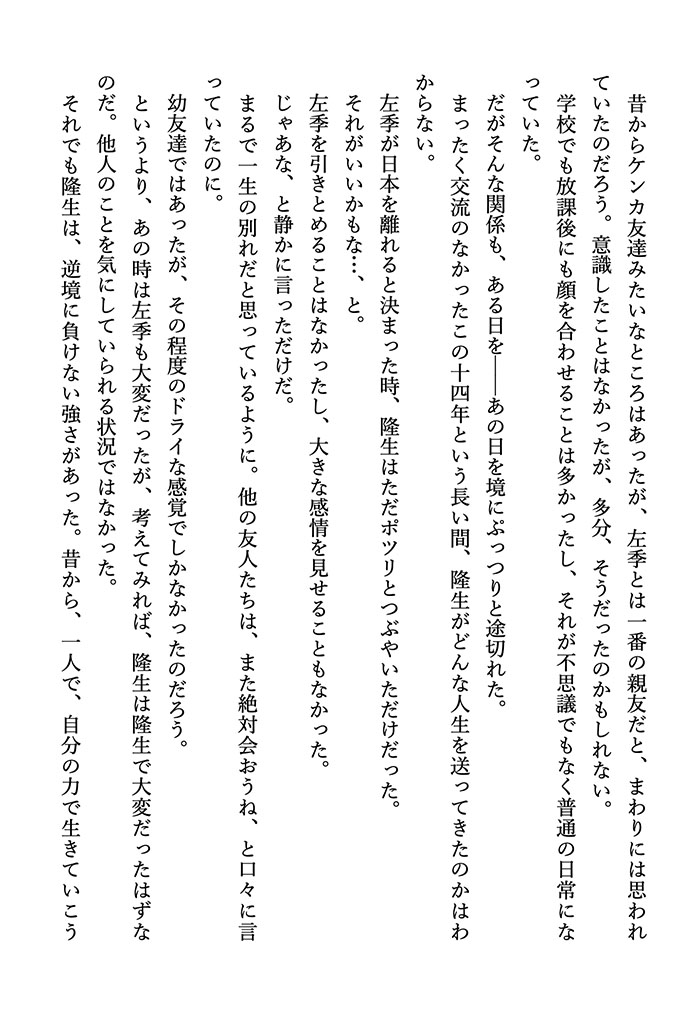 昔からケンカ友達みたいなところはあったが、左季とは一番の親友だと、まわりには思われ
ていたのだろう。意識したことはなかったが、多分、そうだったのかもしれない。
　学校でも放課後にも顔を合わせることは多かったし、それが不思議でもなく普通の日常にな
っていた。
　だがそんな関係も、ある日を――あの日を境にぷっつりと途切れた。
　まったく交流のなかったこの十四年という長い間、隆生がどんな人生を送ってきたのかはわ
からない。
　左季が日本を離れると決まった時、隆生はただポツリとつぶやいただけだった。
　それがいいかもな…、と。
　左季を引きとめることはなかったし、大きな感情を見せることもなかった。
　じゃあな、と静かに言っただけだ。
　まるで一生の別れだと思っているように。他の友人たちは、また絶対会おうね、と口々に言
っていたのに。
　幼友達ではあったが、その程度のドライな感覚でしかなかったのだろう。
　というより、あの時は左季も大変だったが、考えてみれば、隆生は隆生で大変だったはずな
のだ。他人のことを気にしていられる状況ではなかった。
　それでも隆生は、逆境に負けない強さがあった。昔から、一人で、自分の力で生きていこう